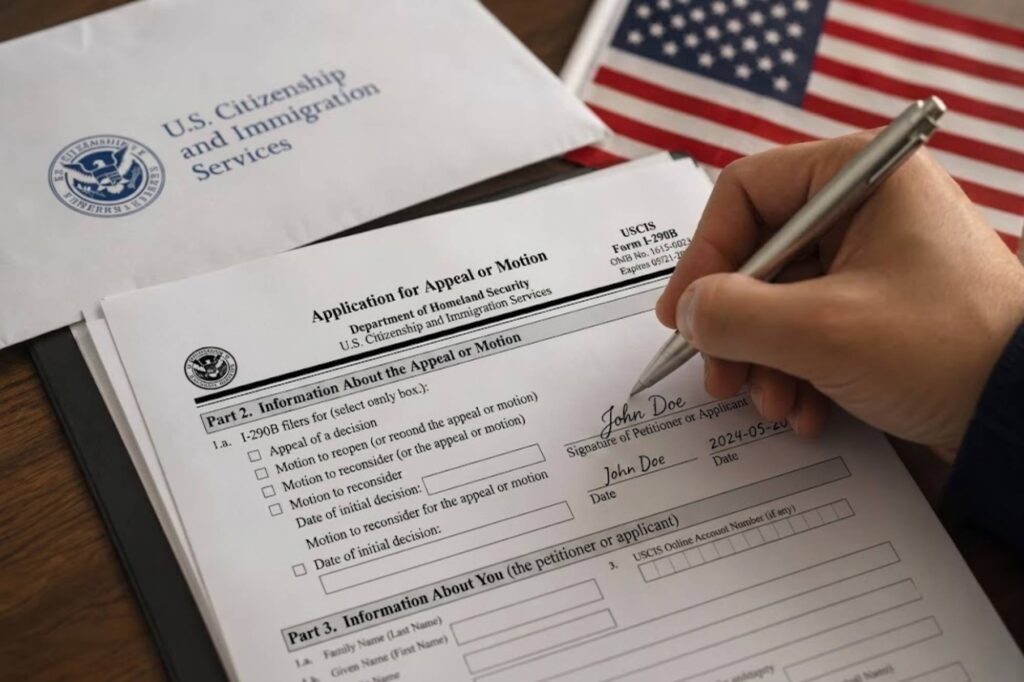 U.S. Citizenship
and Immigration
Services
USCIS
Form I-290B
OMB No.
Expires
Application for Appeal or Motion
Department of Homeland Security
U.S. Citizenship and Immigration Services
Part 2. Information About the Appeal or Motion
1.a. I-290B filers for (select only box.):
Appeal of a decision
Motion to reopen (or recond the appeal or motion)
Motion to reconsider (or the appeal or motion)
Motion to reconsider
Date of initial decision:
Motion to reconsider for the appeal or motion
Date of initial decision:
John Doe
Signature of Petitioner or Applicant
John Doe
2024-05-20
Date
Date
Part 3. Information About You (the petitioner or applicant)
1.a. Family Name (Last Name)
Given Name (First Name)
Name
3. USCIS Online Account Number (if any)
Name)